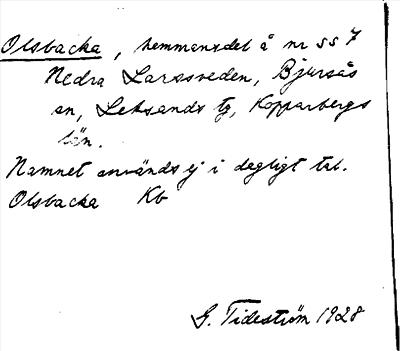 Olsbacka, hemmansdel å nr ss 7
Nedra Larssveden, Bjursås
sn, Leksands tg, Kopparbergs
län.
Namnet användes ej i dagligt tal.
Olsbacka Kb
G. Tideström 1928